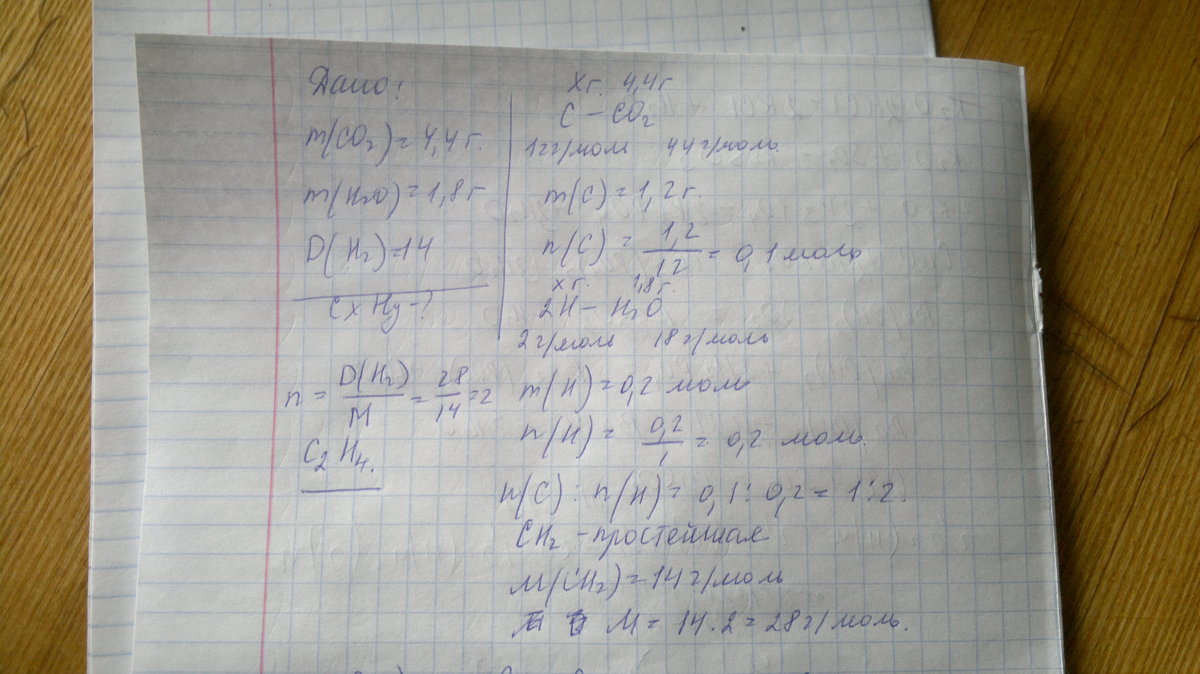 Дано:
m(CO2) = 4,4 г.
m(H2O) = 1,8 г
D(H2) = 14
CxHy - ?
n = D(H2)/M = 28/14 = 2
C2H4.
xг. 4,4г
C - CO2
12г/мол 44г/моль
m(C) = 1,2г.
n(C) = 1,2/12 = 0,1 моль
xг. 1,8г.
2H - H2O
2г/моль 18г/моль
m(H) = 0,2 моль
n(H) = 0,2/1 = 0,2 моль.
n(C) : n(H) = 0,1 : 0,2 = 1:2.
CH2 - простейшая
M(CH2) = 14г/моль
M = 14·2 = 28г/моль.